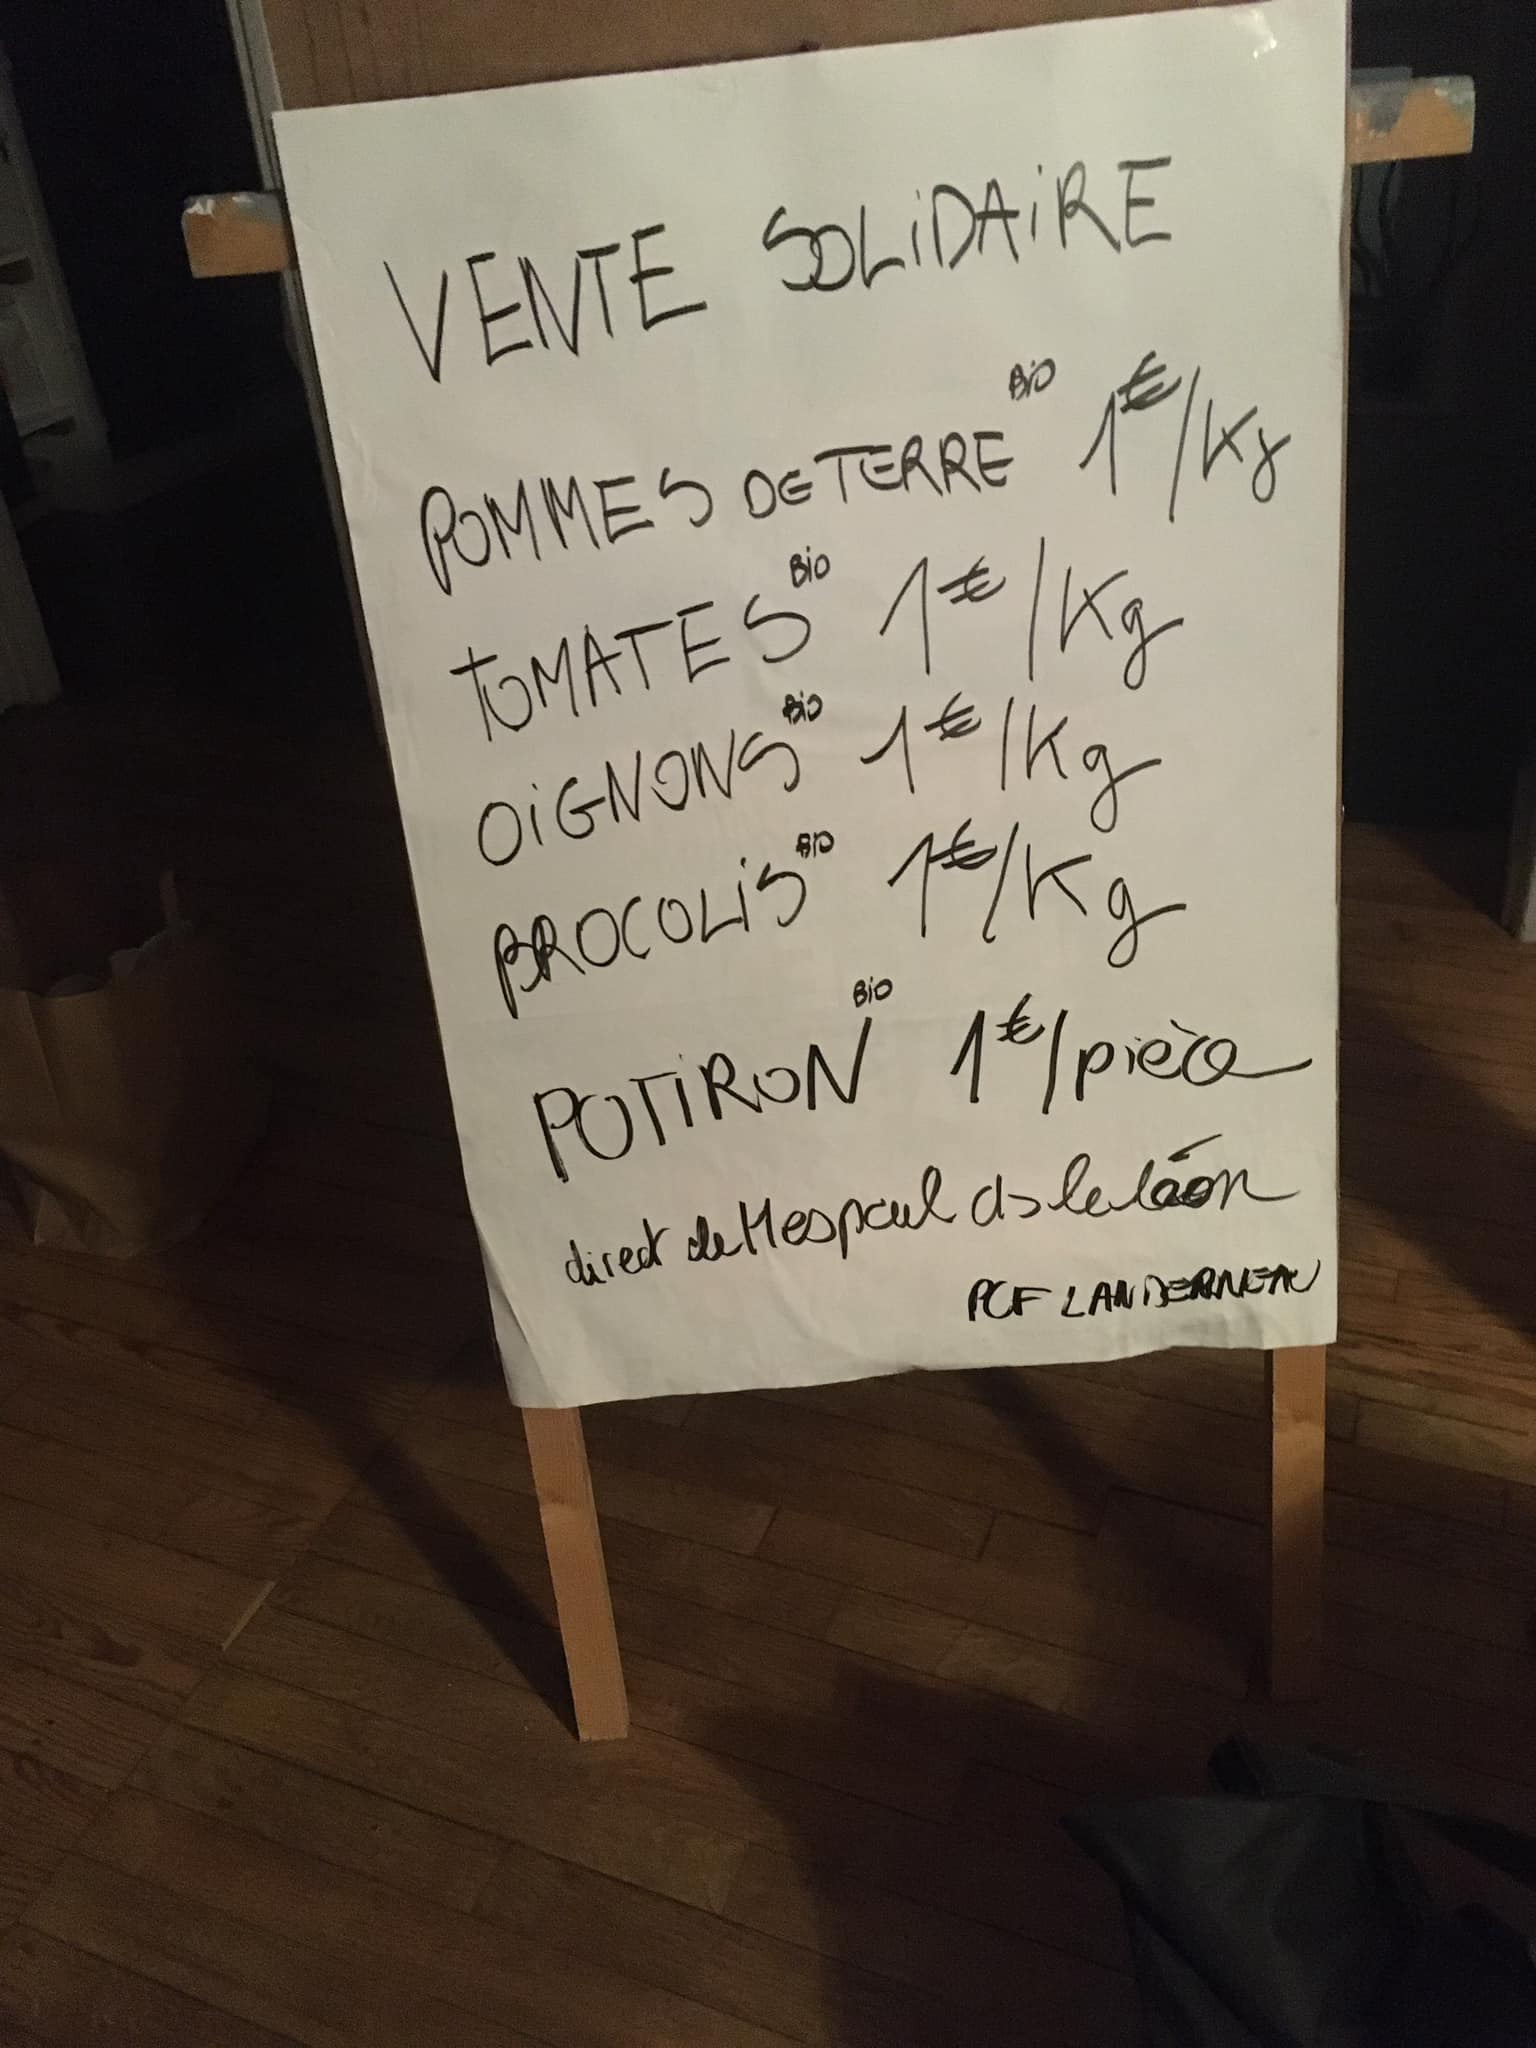 VENTE SOLIDAIRE
POMMES DE TERRE BIO 1€/Kg
TOMATES BIO 1€/Kg
OIGNONS BIO 1€/Kg
BROCOLIS BIO 1€/Kg
POTIRON BIO 1€/pièce
direct de Mespaul ds le léon
PCF LANDERNEAU